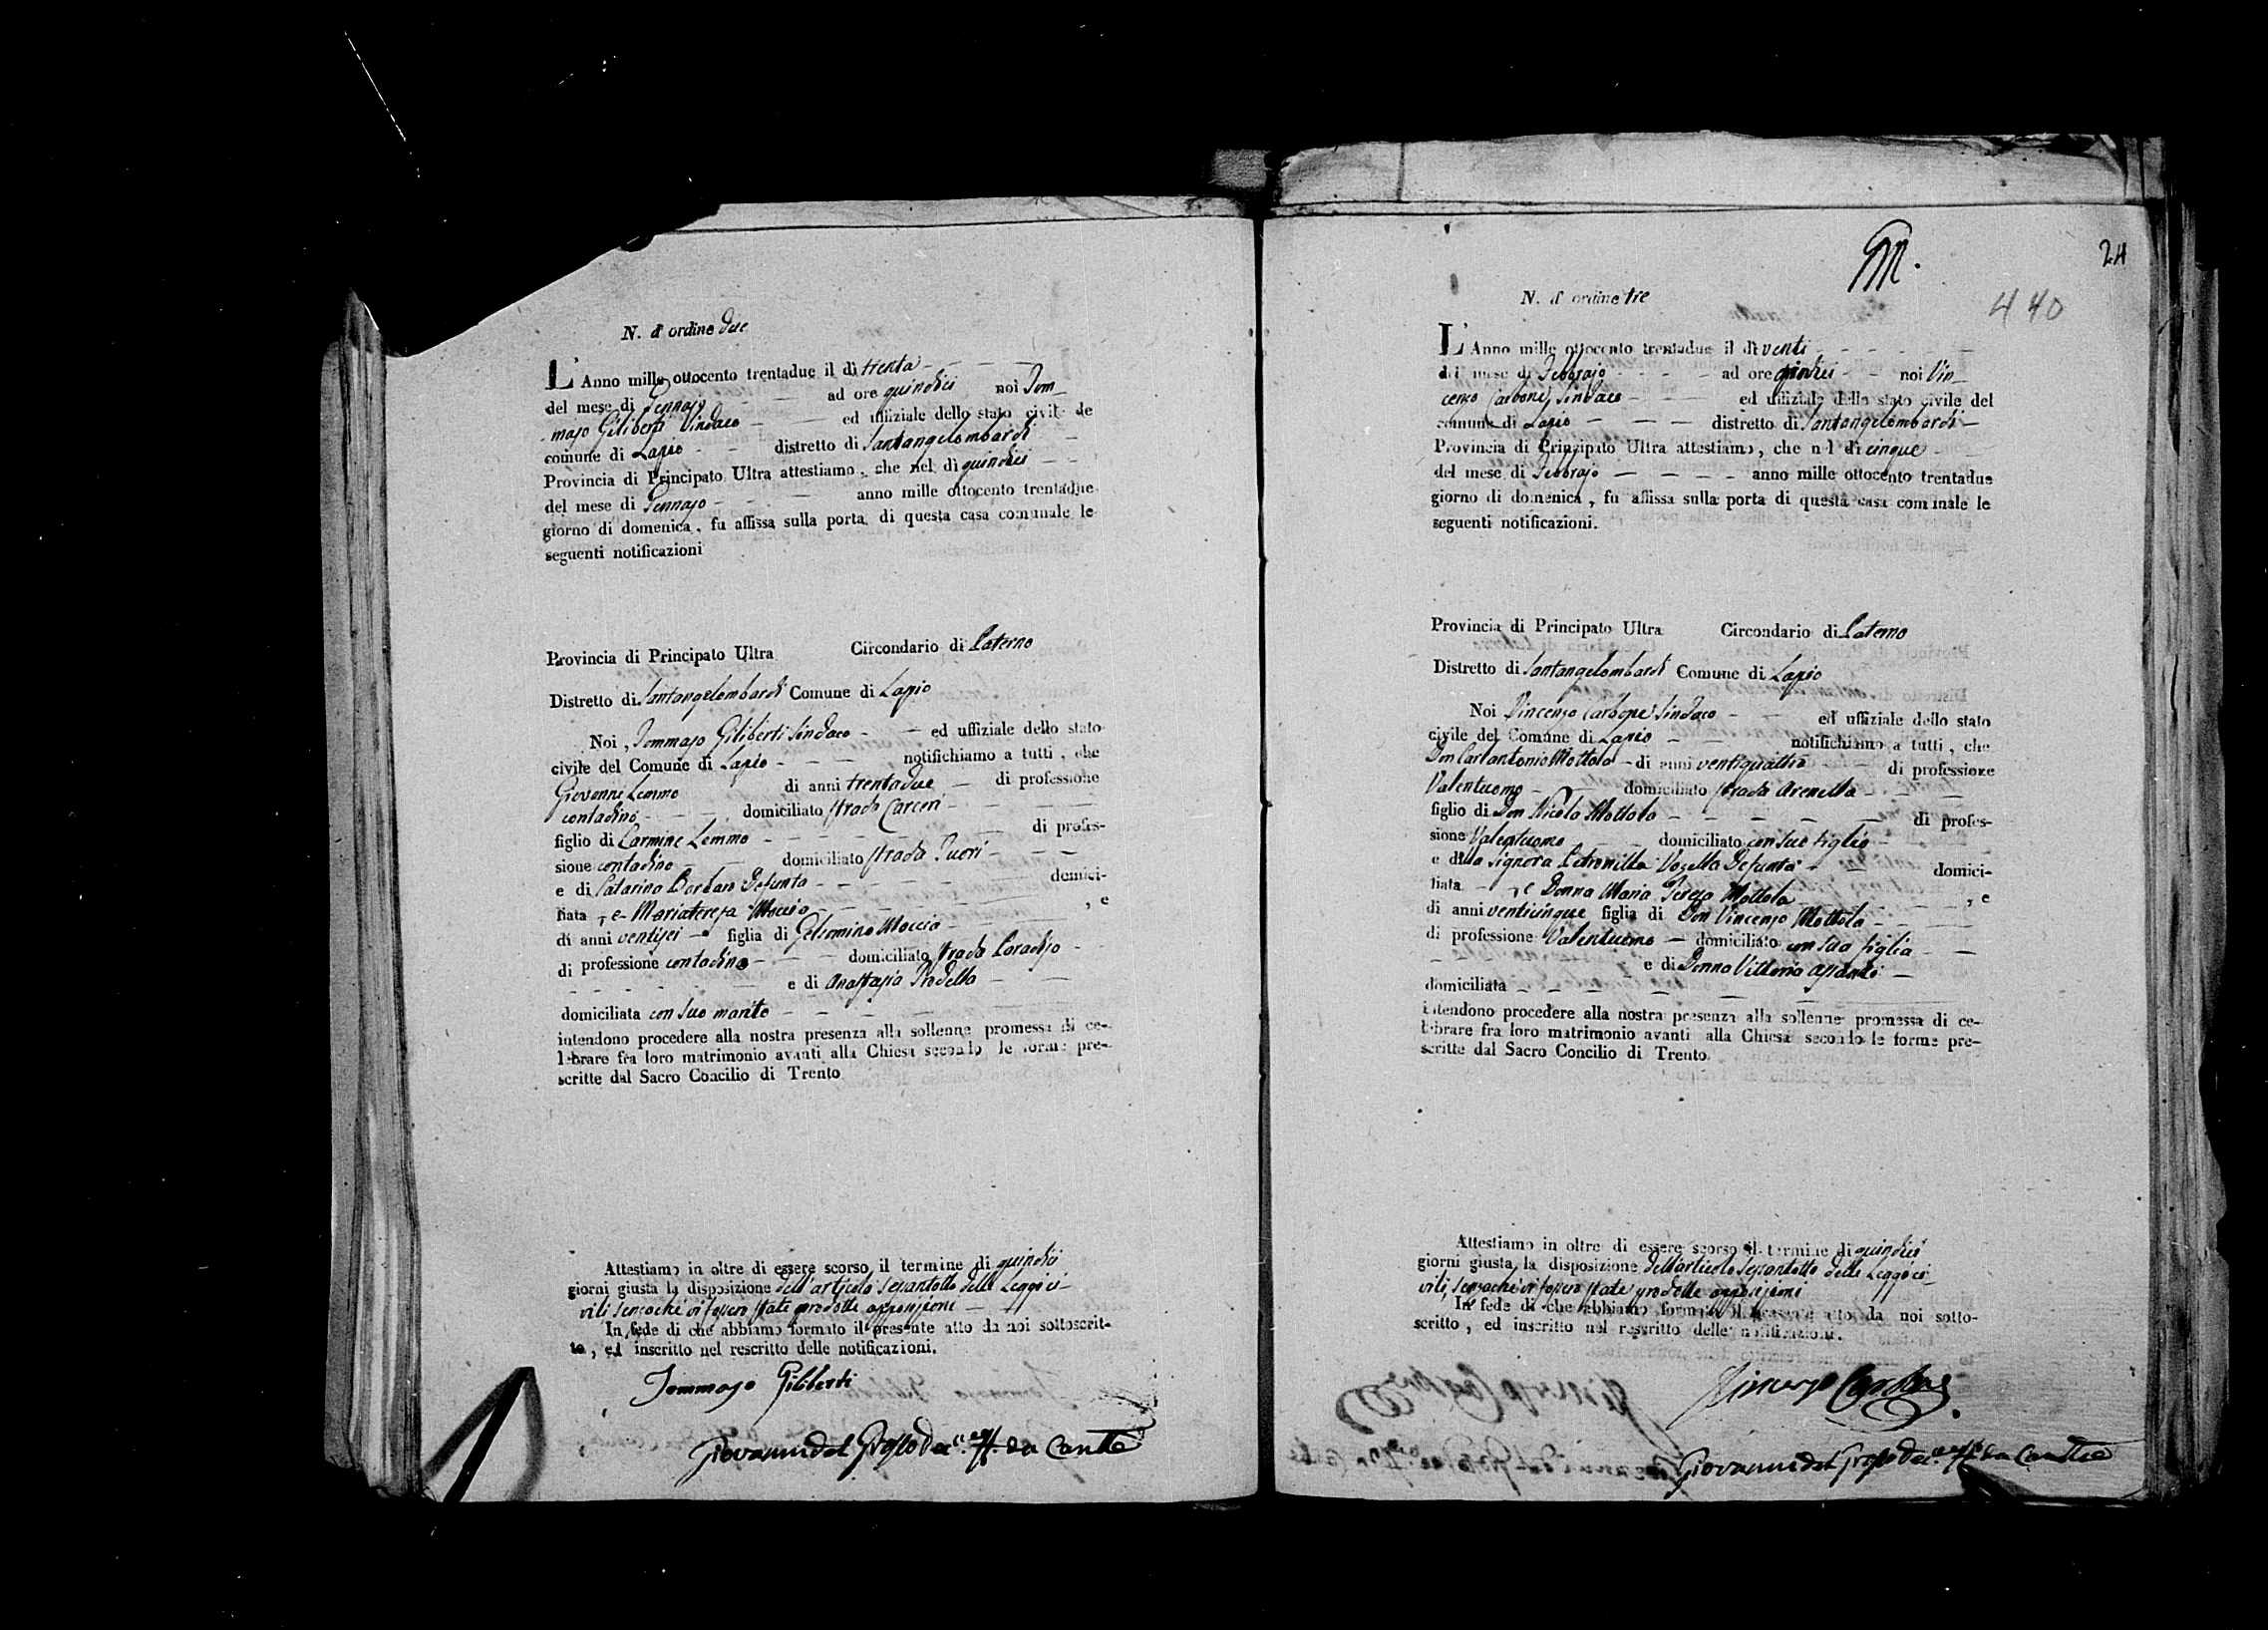 N. d'ordine due
L'Anno mille ottocento trentadue il dì trenta
del mese di Gennajo ad ore quindici noi Tom-
maso Giliberti Sindaco ed uffiziale dello stato civile de
comune di Lapio distretto di Santangelombardi
Provincia di Principato Ultra attestiamo, che nel dì quindici
del mese di Gennajo anno mille ottocento trentadue
giorno di domenica, fu affissa sulla porta di questa casa comunale le
seguenti notificazioni
Provincia di Principato Ultra Circondario di Paterno
Distretto di Santangelombardi Comune di Lapio
Noi, Tommaso Giliberti Sindaco ed uffiziale dello stato
civile del Comune di Lapio notifichiamo a tutti, che
Giovanne Lemmo di anni trentadue di professione
contadino domiciliato strada Carceri
figlio di Carmine Lemmo di profes-
sione contadino domiciliato strada Fuori
e di Catarina defunta domici-
liata, e Mariateresa Moccia, e
di anni ventisei figlia di Gelsomino Moccia
di professione contadino domiciliato strada Paradiso
e di Anastasia Prodella
domiciliata con suo marito
intendono procedere alla nostra presenza alla sollenne promessa di ce-
lebrare fra loro matrimonio avanti alla Chiesa secondo le forme pre-
scritte dal Sacro Concilio di Trento
Attestiamo in oltre di essere scorso il termine di quindici
giorni giusta la disposizione dell'articolo sessantotto delle Leggi ci-
vili senzaché vi fossero state prodotte opposizioni
In fede di che abbiamo formato il presente atto da noi sottoscrit-
to, ed inscritto nel rescritto delle notificazioni.
Tommaso Giliberti
Giovanni del Grosso
24
440
N. d'ordine tre
L'Anno mille ottocento trentadue il dì venti
del mese di Febbrajo ad ore quindici noi Vin-
cenzo Carbone Sindaco ed uffiziale dello stato civile del
comune di Lapio distretto di Santangelombardi
Provincia di Principato Ultra attestiamo, che nel dì cinque
del mese di Febbrajo anno mille ottocento trentadue
giorno di domenica, fu affissa sulla porta di questa casa communale le
seguenti notificazioni.
Provincia di Principato Ultra Circondario di Paterno
Distretto di Santangelombardi Comune di Lapio
Noi Vincenzo Carbone Sindaco ed uffiziale dello stato
civile del Comune di Lapio notifichiamo a tutti, che
Don Carlantonio Mottola di anni ventiquattro di professione
Valentuomo domiciliato strada Arenella
figlio di Don Nicola Mottola di profes-
sione Valentuomo domiciliato con suo figlio
e della Signora Petronilla Vozella defunta domici-
liata, e Donna Maria Teresa Mottola, e
di anni venticinque figlia di Don Vincenzo Mottola
di professione Valentuomo domiciliato con sua figlia
e di Donna Vittoria
domiciliata
intendono procedere alla nostra presenza alla sollenne promessa di ce-
lebrare fra loro matrimonio avanti alla Chiesa secondo le forme pre-
scritte dal Sacro Concilio di Trento.
Attestiamo in oltre di essere scorso il termine di quindici
giorni giusta la disposizione dell'articolo sessantotto delle Leggi ci-
vili, senzaché vi fossero state prodotte opposizioni
In fede di che abbiamo formato il presente atto da noi sotto-
scritto, ed inscritto nel rescritto delle notificazioni.
Vincenzo Carbone
Giovanni del Grosso